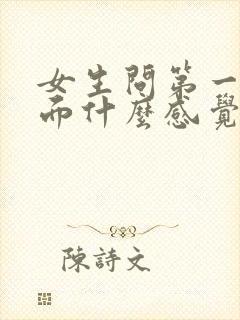 女生問第一
而什麼感覺
陳詩文